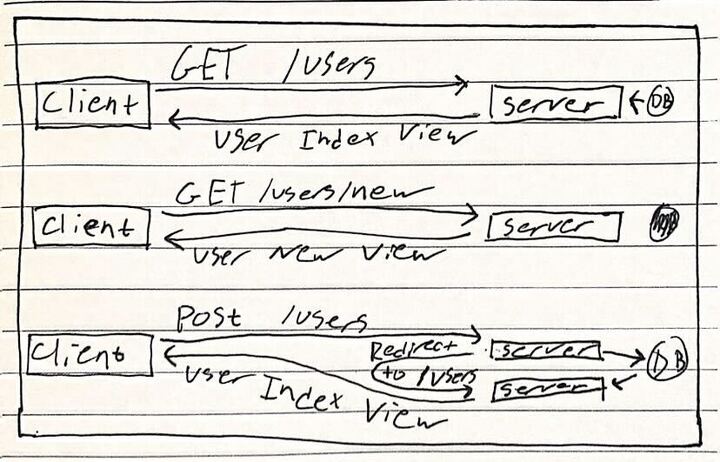 GET /users
Client
server
DB
User Index View
GET /users/new
Client
server
User New View
POST /users
Client
Redirect
to /users
server
DB
server
User Index View